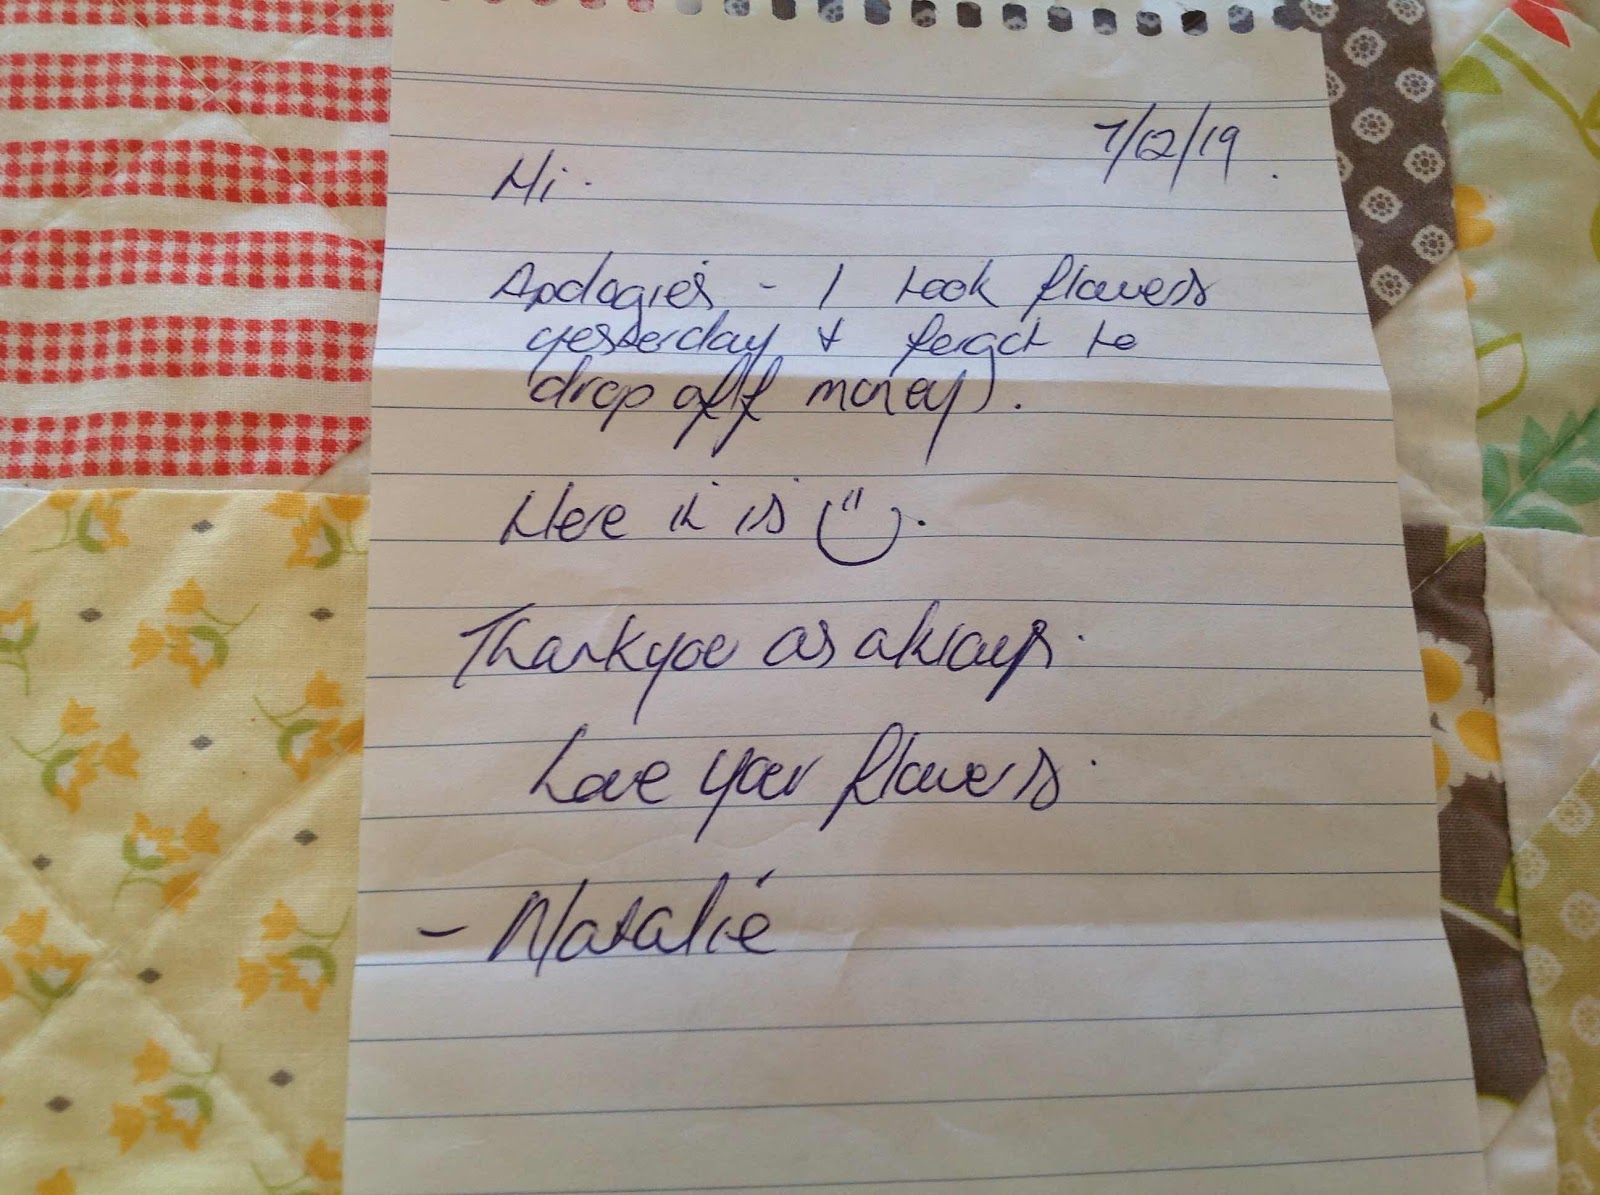 7/12/19.
Hi.
Apologies - I took flowers
yesterday & forgot to
drop off money).
Here it is
Thankyou as always.
Love your flowers.
- Natalie